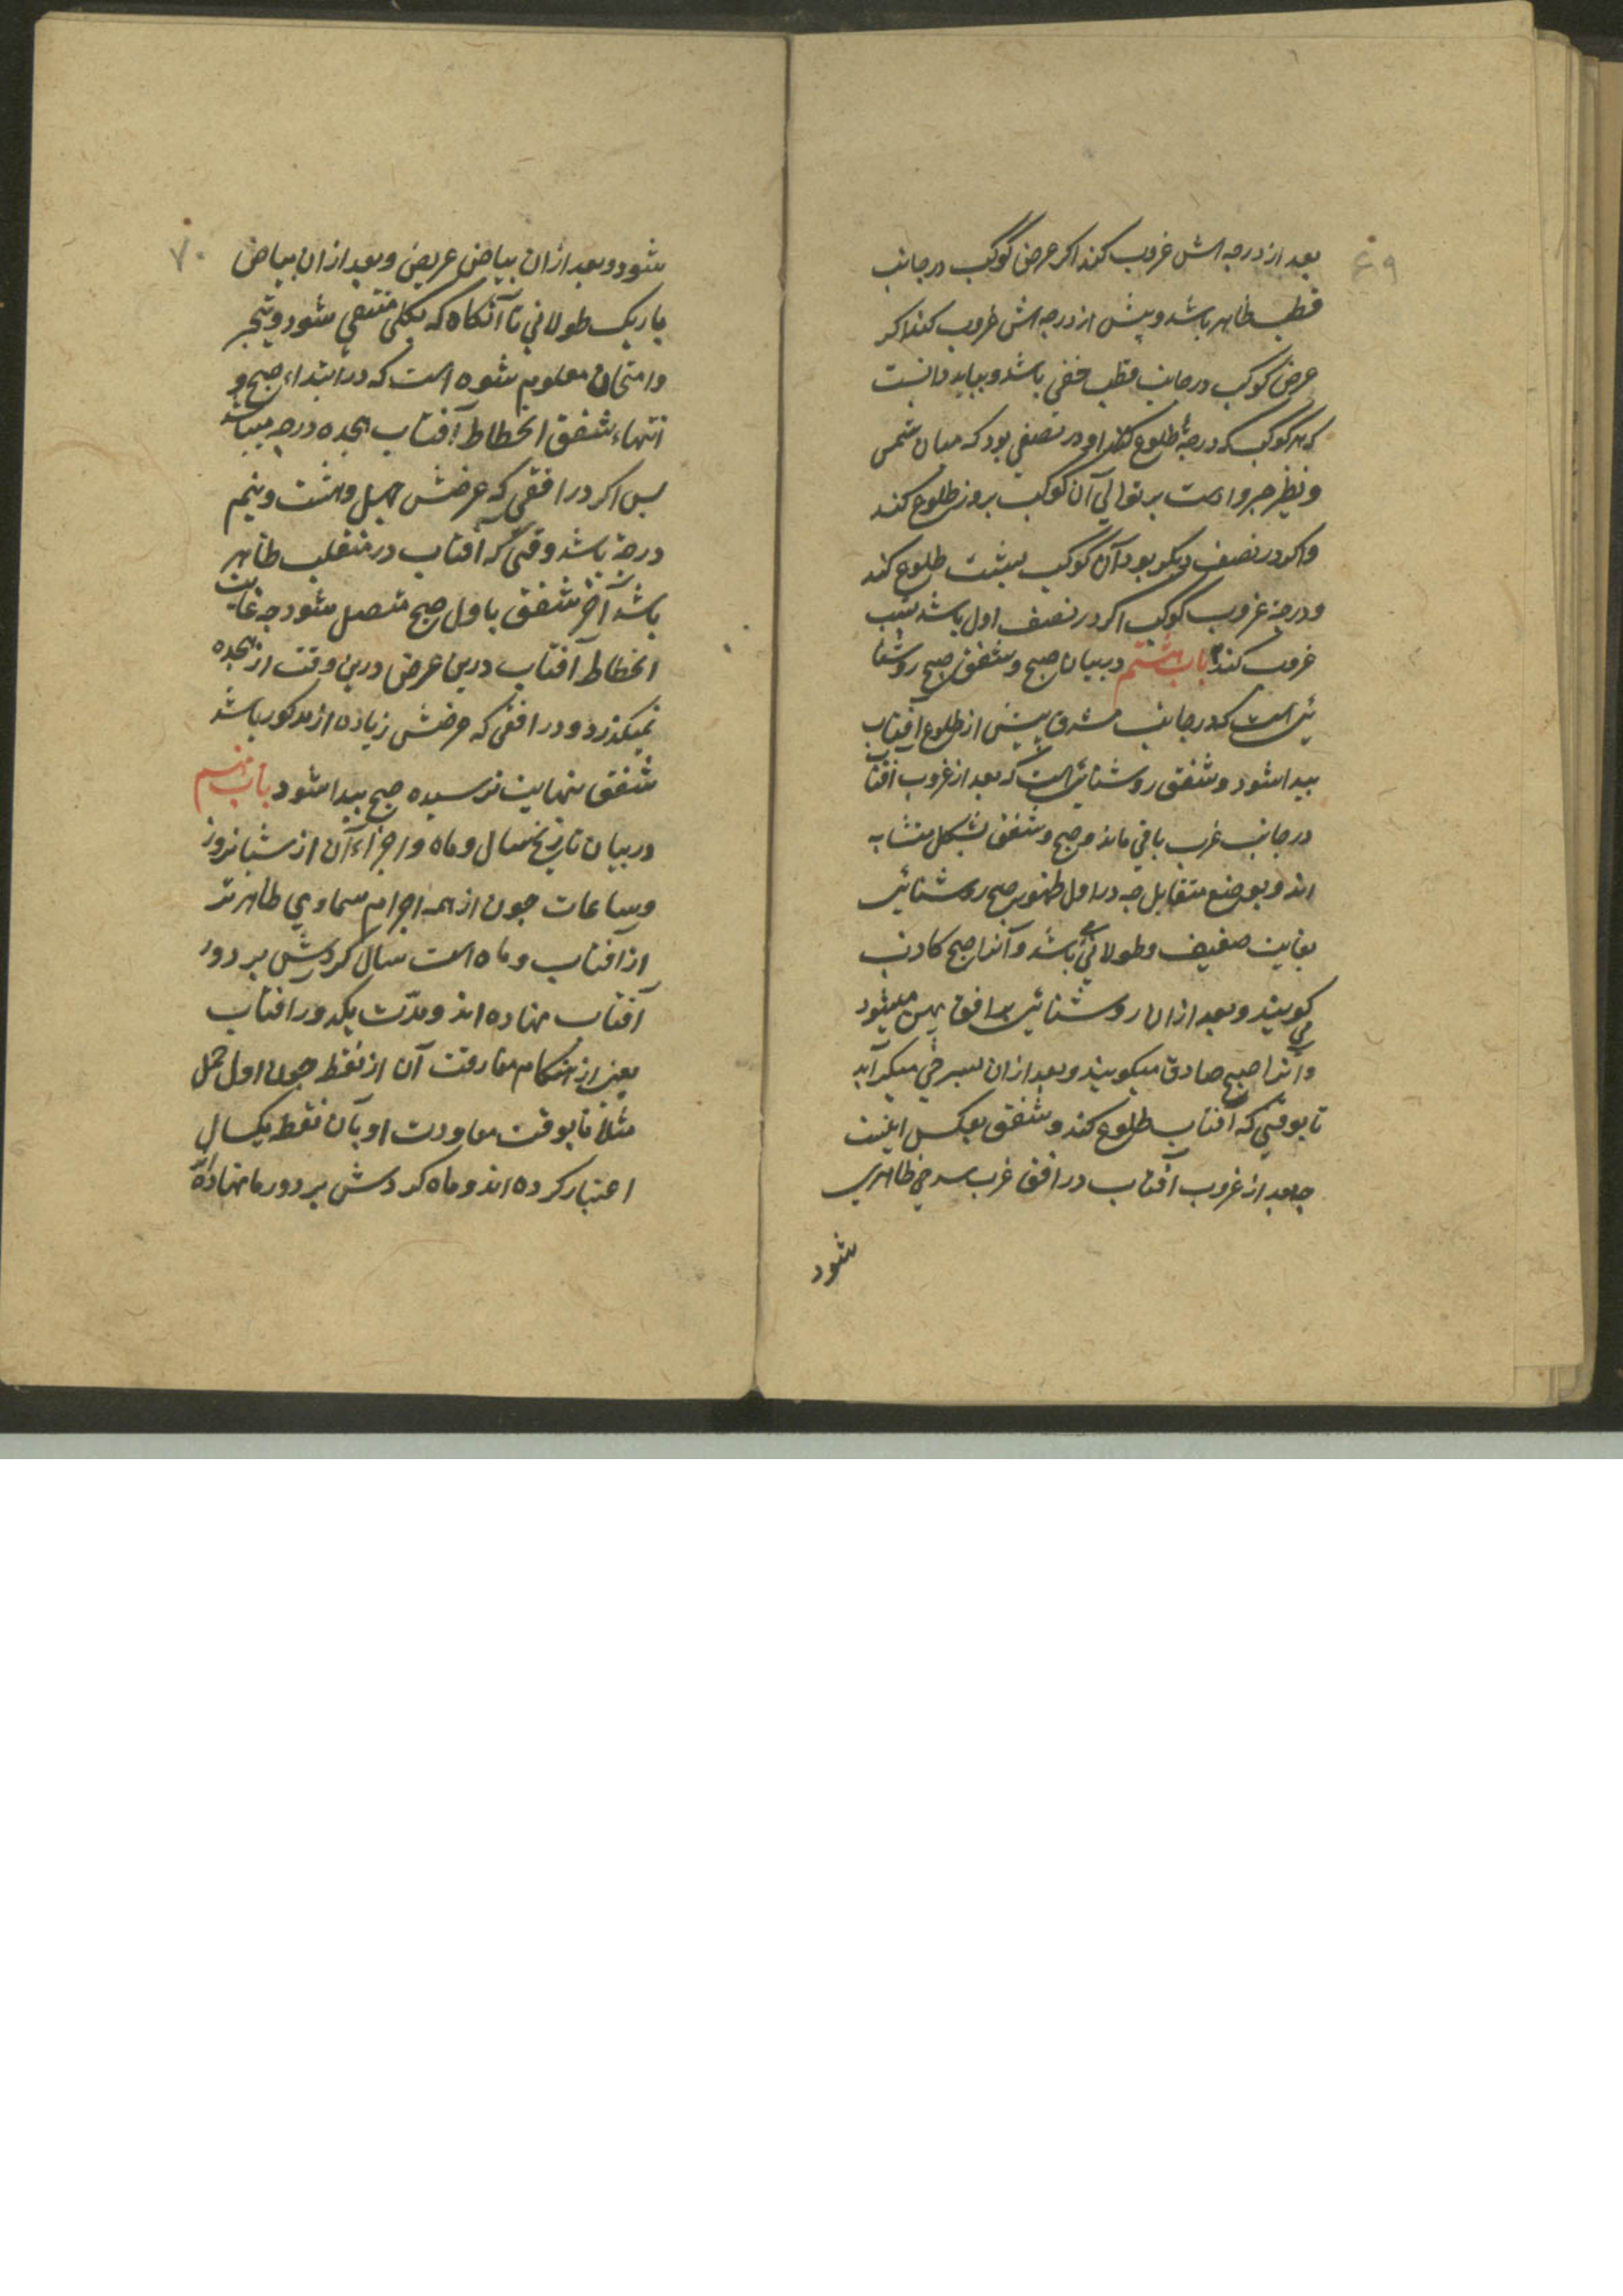 ۶۹
بعد از درجه اش غروب کند اکر عرض کوکب در جانب
قطب ظاهر باشد و پیش از درجه اش غروب کند اکر
عرض کوکب در جانب قطب خفی باشد و بباید دانست
که هر کوکب که درجهٔ طلوع او در نصفی بود که میان شمس
و نظیر جزو اوست بر توالی آن کوکب بروز طلوع کند
و اکر در نصف دیکر بود آن کوکب بشب طلوع کند
و درجهٔ غروب کوکب اکر در نصف اول باشد بشب
غروب کند باب هشتم در بیان صبح و شفق صبح روشنا
ئی است که در جانب مشرق پیش از طلوع آفتاب
پیدا شود و شفق روشنائی است که بعد از غروب آفتاب
در جانب غرب باقی ماند و صبح و شفق بشکل متشابه
اند و بوضع متقابل چه در اول ظهور صبح روشنائی
بغایت ضعیف و طولانی می باشد و آنرا صبح کاذب
کویند و بعد از ان روشنائی بر افق پهن میشود
و آنرا صبح صادق میکویند و بعد از ان بسرخی میکراید
تا بوقتی که آفتاب طلوع کند و شفق بعکس اینست
چه بعد از غروب آفتاب در افق غرب سرخی ظاهر می
شود
۷۰
شود و بعد از ان بیاض عریض و بعد از ان بیاض
باریک طولانی تا آنکاه که بکلی منتفی شود و بتجربه
و امتحان معلوم شده است که در ابتداء صبح و
انتهاء شفق انحطاط آفتاب هجده درجه میباشد
پس اکر در افقی که عرضش چهل و هشت و نیم
درجه باشد وقتی که آفتاب در منقلب ظاهر
باشد آخر شفق باول صبح متصل شود چه غایت
انحطاط آفتاب درین عرض درین وقت از هجده
نمیکذرد و در افقی که عرضش زیاده از مذکور باشد
شفق بنهایت نرسیده صبح پیدا شود باب نهم
در بیان تاریخ سال و ماه و اجزاء آن از شبانروز
و ساعات چون از همه اجرام سماوی ظاهرتر
از آفتاب و ماه است سال کردش بر دور
آفتاب نهاده اند و مدّت یکدور آفتاب
یعنی از هنکام مفارقت آن از نقطه چون اول حمل
مثلا تا بوقت معاودت او بآن نقطه یکسال
اعتبار کرده اند و ماه کردش بر دور ماه نهاده اند